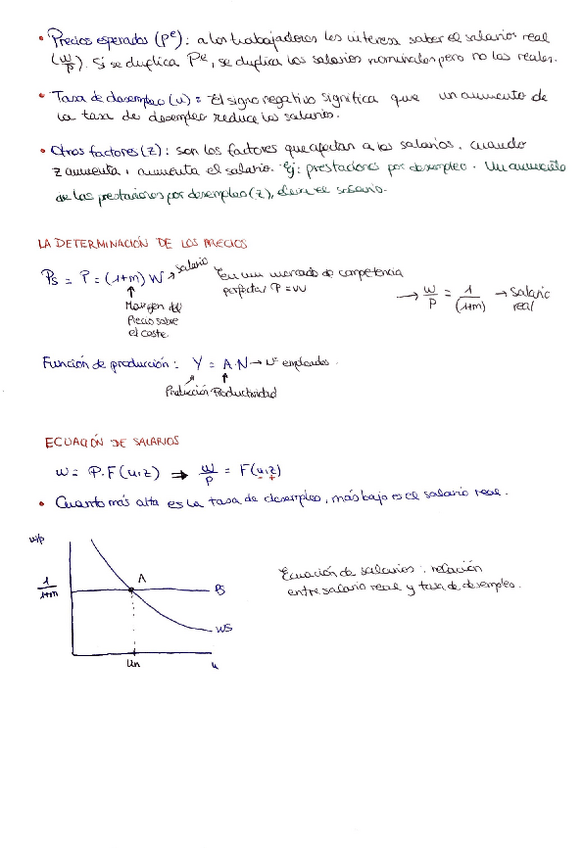 • Precios esperados (pᵉ): a los trabajadores les interesa saber el salarios real
(w/p). Si se duplica Pᵉ, se duplica los salarios nominales pero no los reales.
• Tasa de desempleo (u) = El signo negativo significa que un aumento de
la tasa de desempleo reduce los salarios.
• Otros factores (z): son los factores que afectan a los salarios. cuando
z aumenta, aumenta el salario. Ej: prestaciones por desempleo. Un aumento
de las prestaciones por desempleo (z), eleva el salario.
LA DETERMINACIÓN DE LOS PRECIOS
Ps = P = (1+m) W → salario
En un mercado de competencia
perfecta P = W
→ w/P = 1/(1+m) → Salario
real
Margen del
Precio sobre
el coste.
Función de producción: Y = A.N → Nº empleados.
Producción Productividad
ECUACIÓN DE SALARIOS
w = P.F(u,z) → w/P = F(u,z)
- +
• Cuanto más alta es la tasa de desempleo, más bajo es el salario real.
w/p
1/1+m
A
PS
WS
un
u
Ecuación de salarios: relación
entre salario real y tasa de desempleo.